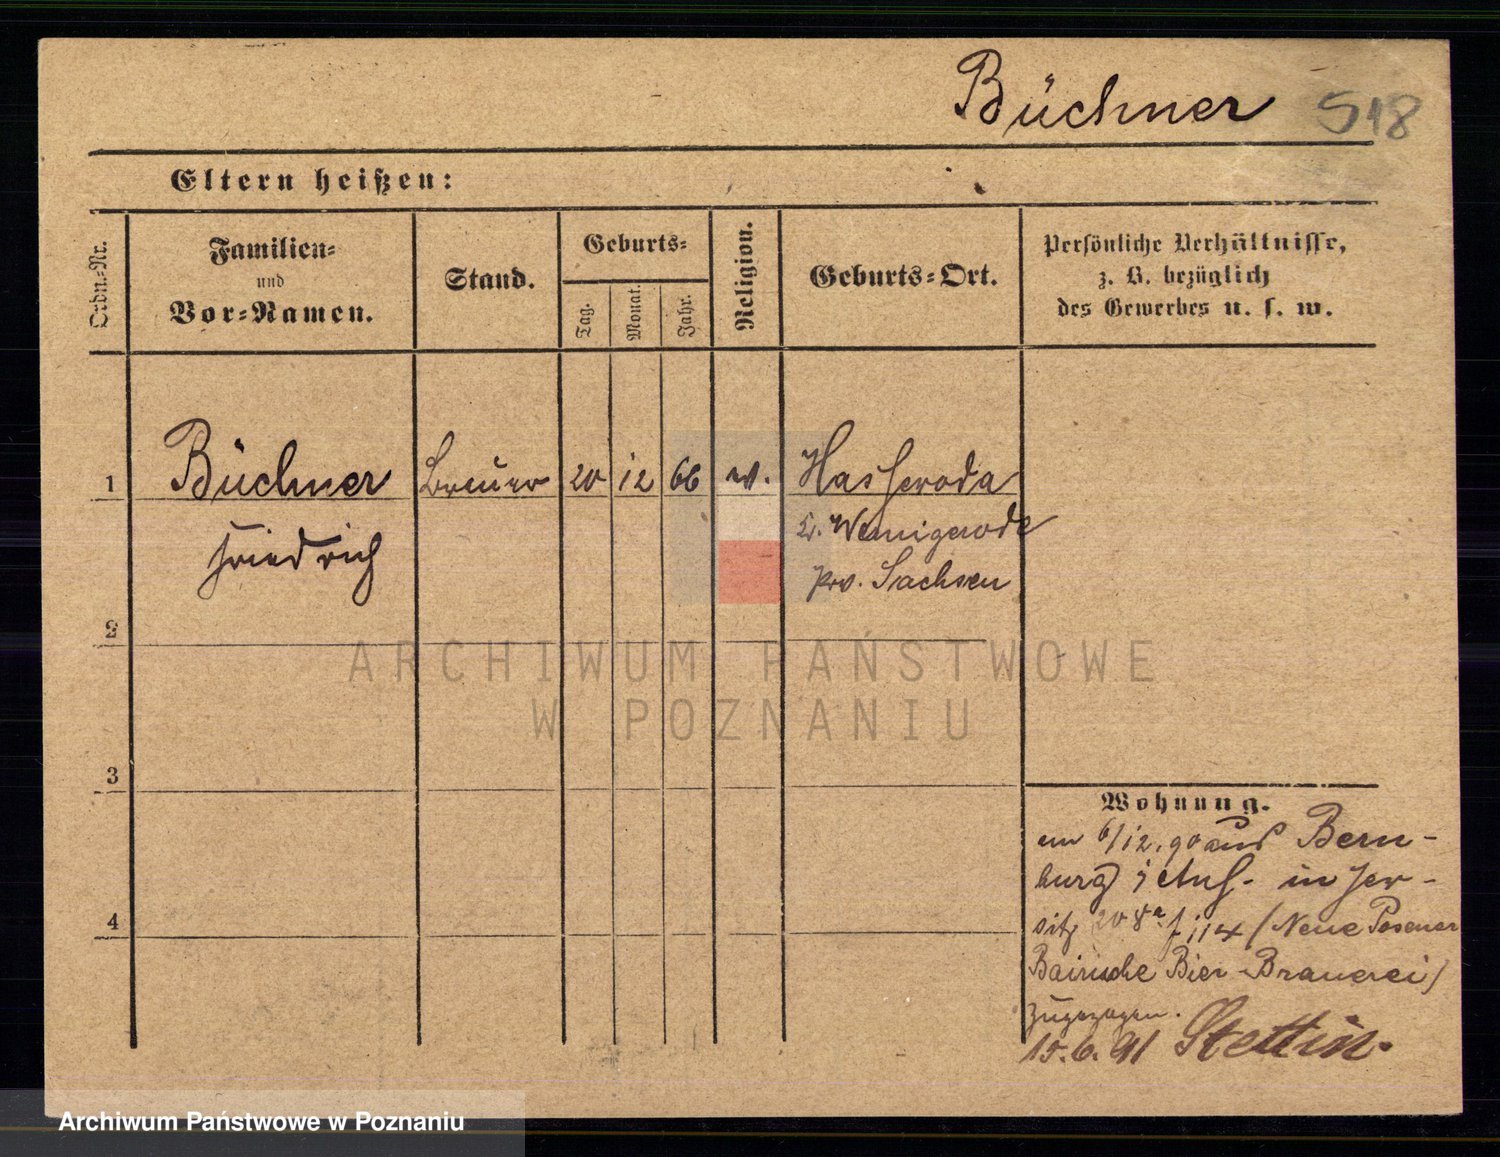 Büchner 518
Eltern heißen:
Ordn.-Nr.
Familien-
und
Vor-Namen.
Stand.
Geburts-
Tag.
Monat.
Jahr.
Religion.
Geburts-Ort.
Persönliche Verhältnisse,
z. B. bezüglich
des Gewerbes u. s. w.
1 Büchner Brauer 20 12 66 Hasserode
Friedrich Kr. Wernigerode
Prv. Sachsen
2
3
4
Wohnung.
am 6/12. 90 aus Bern-
burg i Anh. in Jer-
sitz 114 (Neue Posener
Bairische Bier-Brauerei)
zugezogen.
15.6.91 Stettin.
ARCHIWUM PAŃSTWOWE
W POZNANIU
Archiwum Państwowe w Poznaniu